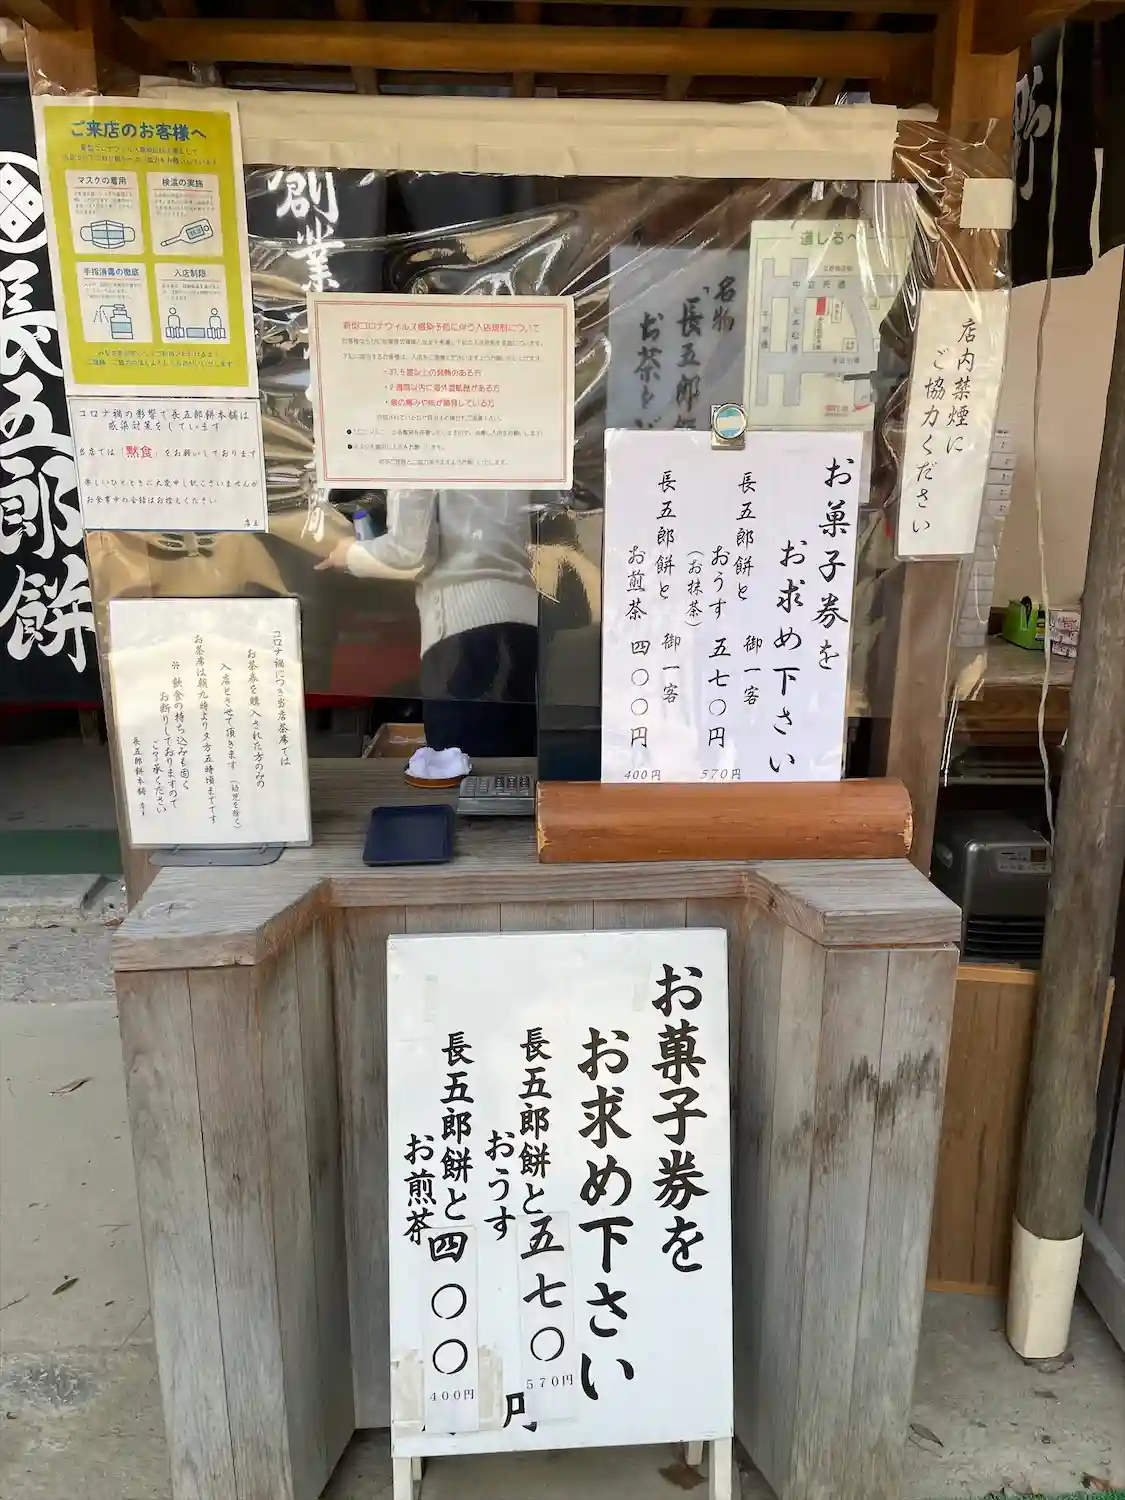 ご来店のお客様へ
マスクの着用
検温の実施
手指消毒の徹底
入店制限
コロナ禍の影響で長五郎餅本舗は
感染対策をしています
当店では「黙食」をお願いしております
お食事中の会話はお控えください
店主
長五郎餅
創業
新型コロナウイルス感染予防に伴う入店規制について
・37.5度以上の発熱のある方
・2週間以内に海外渡航歴がある方
名物
「長五郎餅
お茶を
道しるべ
中立売通
千本通
店内禁煙に
ご協力ください
お菓子券を
お求め下さい
長五郎餅と
おうす
(お抹茶)
御一客
五七〇円
570円
長五郎餅と
お煎茶
御一客
四〇〇円
400円
コロナ禍につき当店茶席では
お茶券を購入された方のみの
入店とさせて頂きます
(幼児を除く)
お茶席は朝九時より夕方五時頃までです
※飲食の持ち込みも固く
お断りしておりますので
ご了承ください
長五郎餅本舗 店主
お菓子券を
お求め下さい
長五郎餅と
おうす
五七〇
570円
円
長五郎餅と
お煎茶
四〇〇
400円